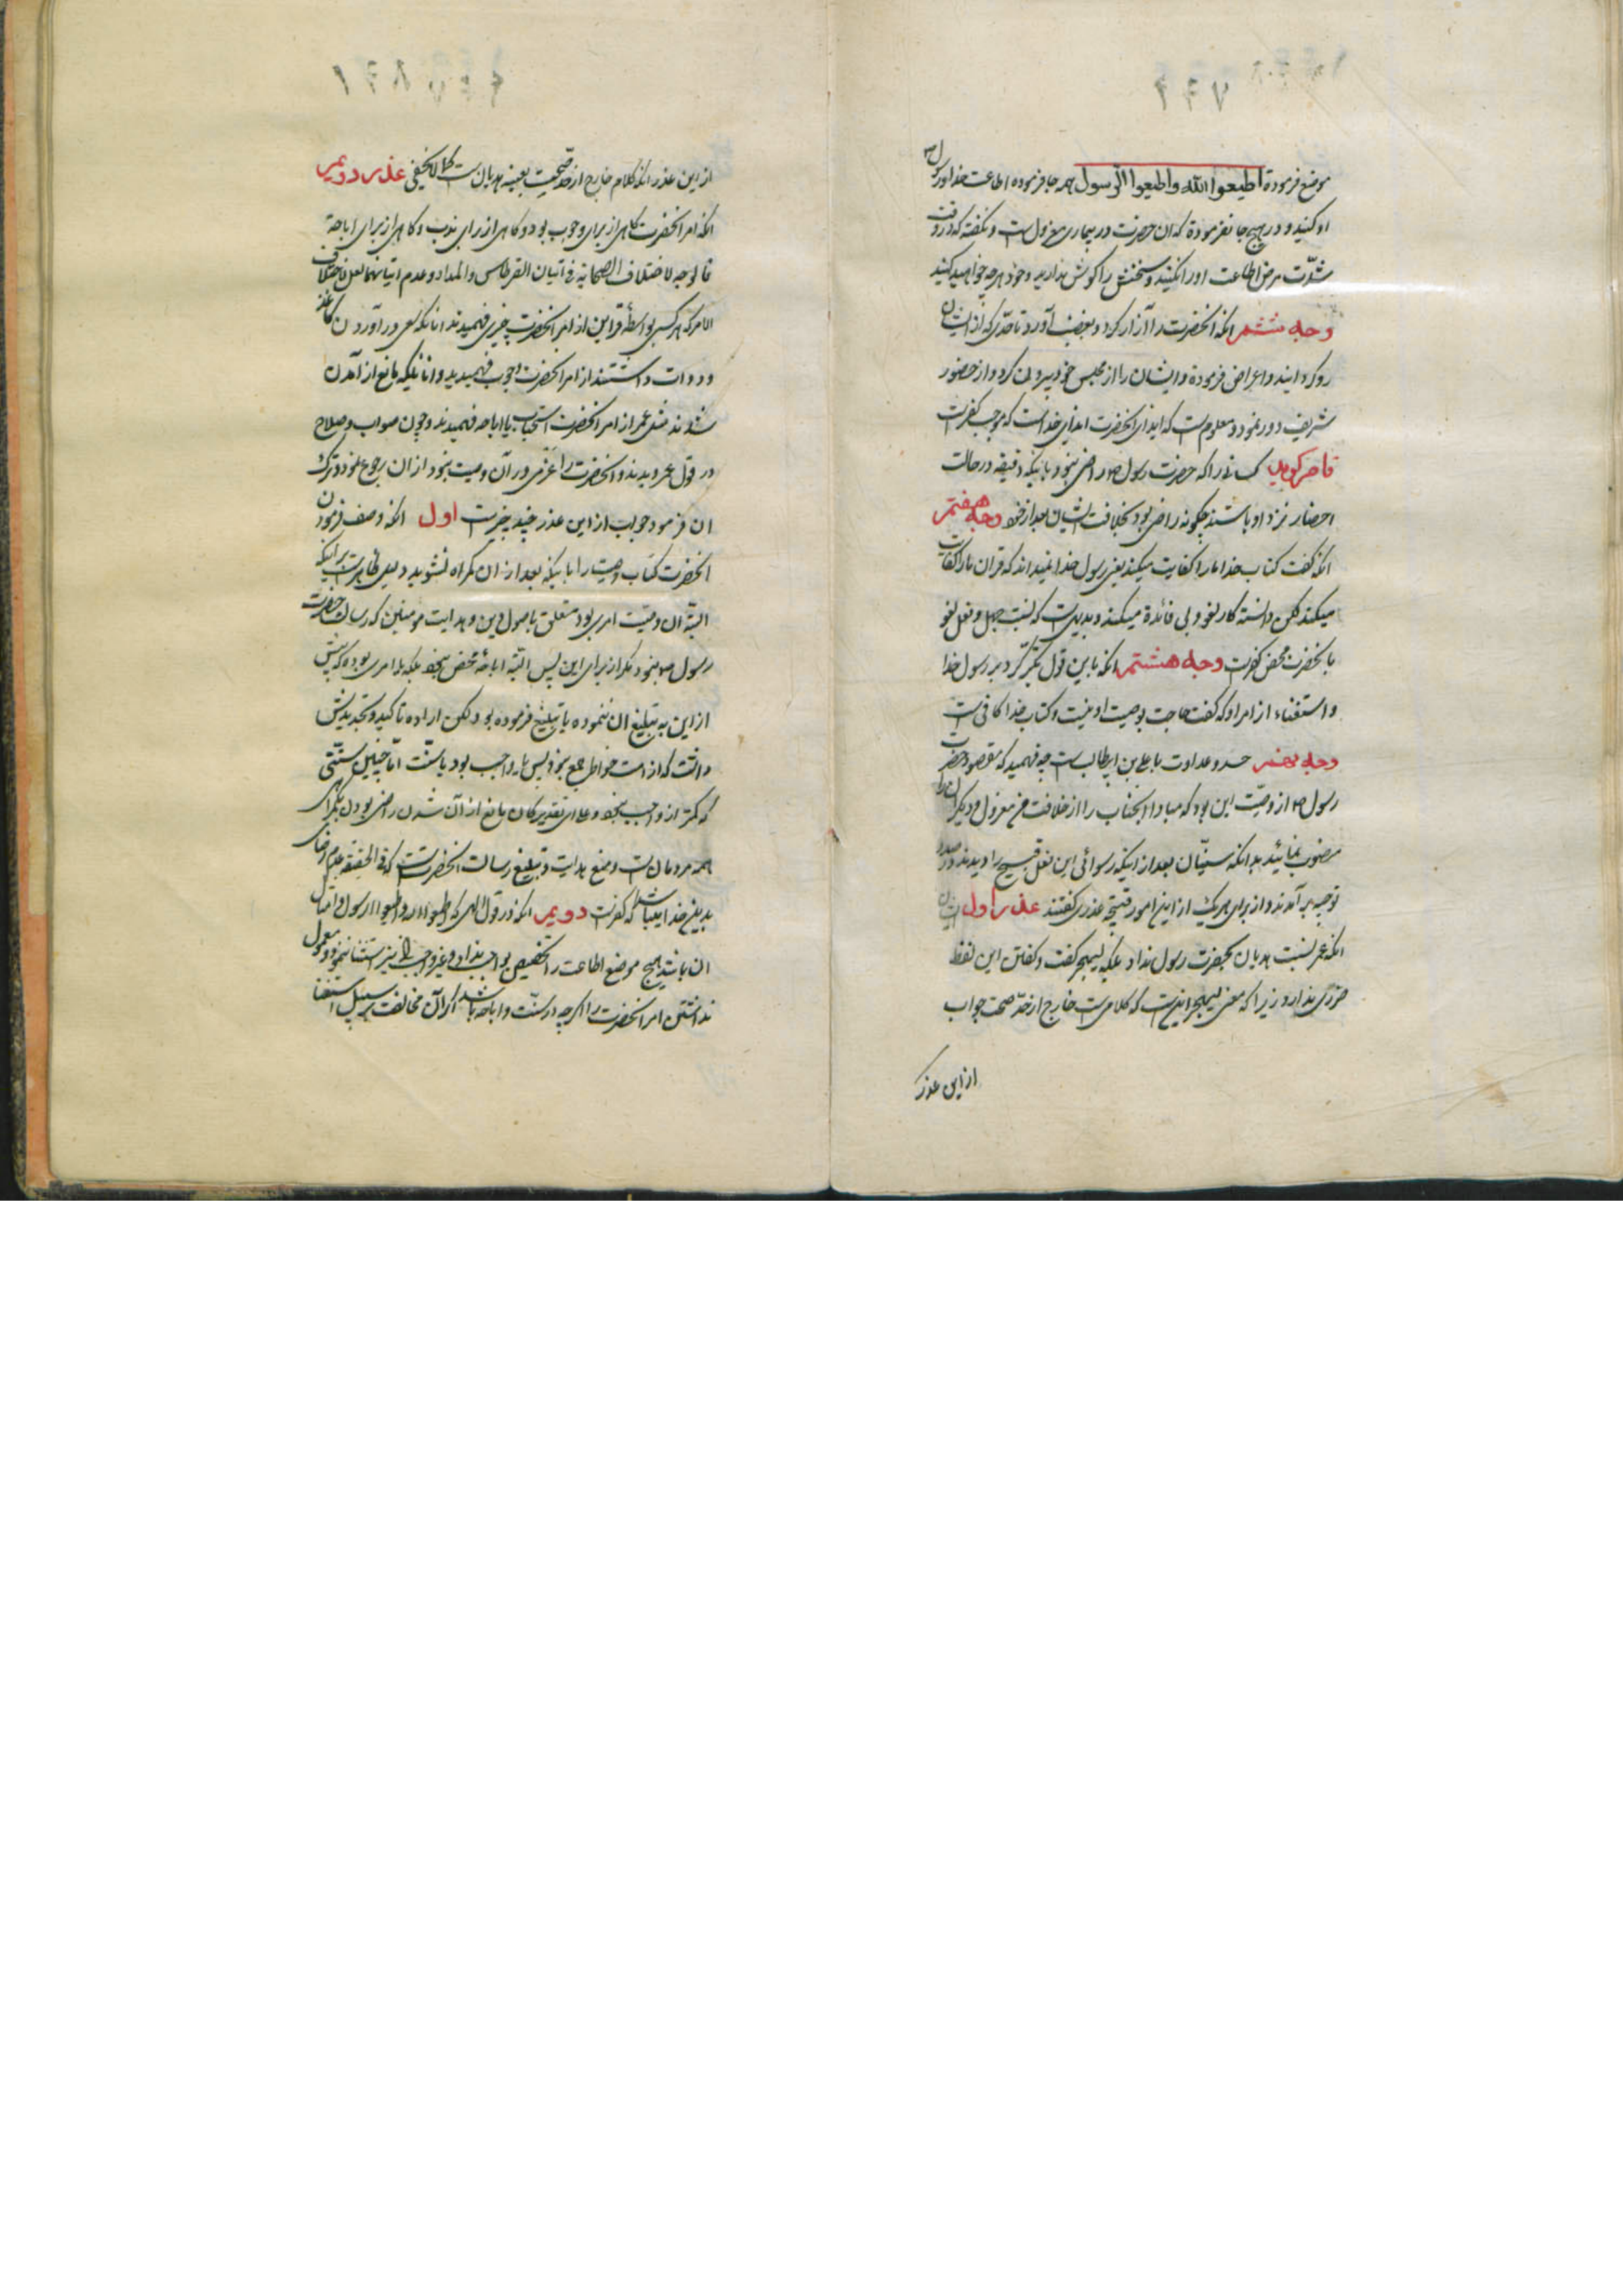 موضع فرموده اطیعوا الله واطیعوا الرسول همه جا فرموده اطاعت خدا ورسول
او کنید و در هیچ جا نفرموده که ان حضرت در بیماری معزول است و نگفته که در وقت
شدّت مرض اطاعت او را نکنید و سخنش را کوش ندارید وخود هرچه خواهید کنید
وجه ششم انکه انحضرت را آزار کرد و بغضب آورد تا حدّی که از ایشان
رو کردانید و اعراض فرموده و ایشان را از مجلس خود بیرون کرد و از حضور
شریف دور نمود و معلوم است که ایذای انحضرت ایذای خداست که موجب کفر است
قاصر کوید کسانیرا که حضرت رسول ص راضی نبود باینکه دقیقه در حالت
احضار نزد او باشند چکونه راضی بود بخلافت ایشان بعد از خود وجه هفتم
انکه گفت کتاب خدا ما را کفایت میکند یعنی رسول خدا نمیداند که قران ما را کفایت
میکند لکن دانسته کار لغو و بی فائدة میکند و بدیهی است که نسبت جهل و فعل لغو
بانحضرت محض کفر است وجه هشتم انکه باین قول تکبّر کرد بر رسول خدا
و استغناء از امر او که گفت حاجت بوصیت او نیست و کتاب خدا کافی است
وجه نهم حسد و عداوت با علی بن ابیطالب است چه فهمید که مقصود حضرت
رسول ص از وصیّت این بود که مبادا انجناب را از خلافت معزول و دیگران را
منصوب نمائید بدانکه سنیّان بعد از اینکه رسوائی این فعل قبیح را دیدند در صدد
توجیه بر آمدند و از برای هریک از این امور قبیحه عذری گفتند عذر اول ایشان
انکه عمر نسبت هذیان بحضرت رسول نداد بلکه لیهجر گفت و گفتن این لفظ
ضرری ندارد زیرا که معنی لیهجر اینست که کلامی است خارج از حدّ صحت جواب
از این عذر
از این عذر انکه کلام خارج از حدّ صحّت بعینه هذیان است کما لا یخفی عذر دویم
انکه امر انحضرت کاهی از برای وجوب بود و کاهی از برای ندب و کاهی از برای اباحة
قالوجه لاختلاف الصحابة فی اتیان القرطاس والمداد وعدم اتیانهما لعل لاختلاف
الامر که هر کسی بواسطۀ قراین از امر انحضرت چیزی فهمیدند انانکه سعی در آوردن کاغذ
و دوات داشتند از امر انحضرت وجوب فهمیدند و انانیکه مانع از آمدن
شدند مثل عمر از امر انحضرت استحباب یا اباحه فهمیدند و چون صواب و صلاح
در قول عمر دیدند و انحضرت را عزمی در آن وصیت نبود از ان رجوع نمود و ترک
ان فرمود جواب از این عذر چند چیز است اول انکه وصف فرمودن
انحضرت کتاب وصیت را باینکه بعد از ان کمراه نشوید دلیل ظاهر است براینکه
البتّه آن وصیّت امری بود متعلق باصول دین و هدایت مومنین که رسالت حضرت
رسول ص نبود مکر از برای این پس البتّه اباحۀ محض نبود بلکه یا امری بوده که پیش
از این به تبلیغ ان ننموده یا تبلیغ فرموده بود لکن اراده تاکید و تجدیدش
داشت که از امت خواطر جمع نبود پس یا واجب بود یا سنّت امّا چنین سنّتی
که کمتر از واجب نبود و علی ای تقدیر کان مانع از آن شدن راضی بودن بکمراهی
همه مردمان است و منع هدایت و تبلیغ رسالت انحضرت است که فی الحقیقه عدم رضای
بدین خدا میباشد که کفر است دویم انکه در قول الهی که اطیعوا الله واطیعوا الرسول و امثال
ان باشد هیچ موضع اطاعت را تخصیص بواجب نداد و غیر واجب را نیز استثنا ننمود و معمول
نداشتن امر انحضرت را اکرچه در سنّت و اباحه باشد اکر آن مخالفت بر سبیل استغنا